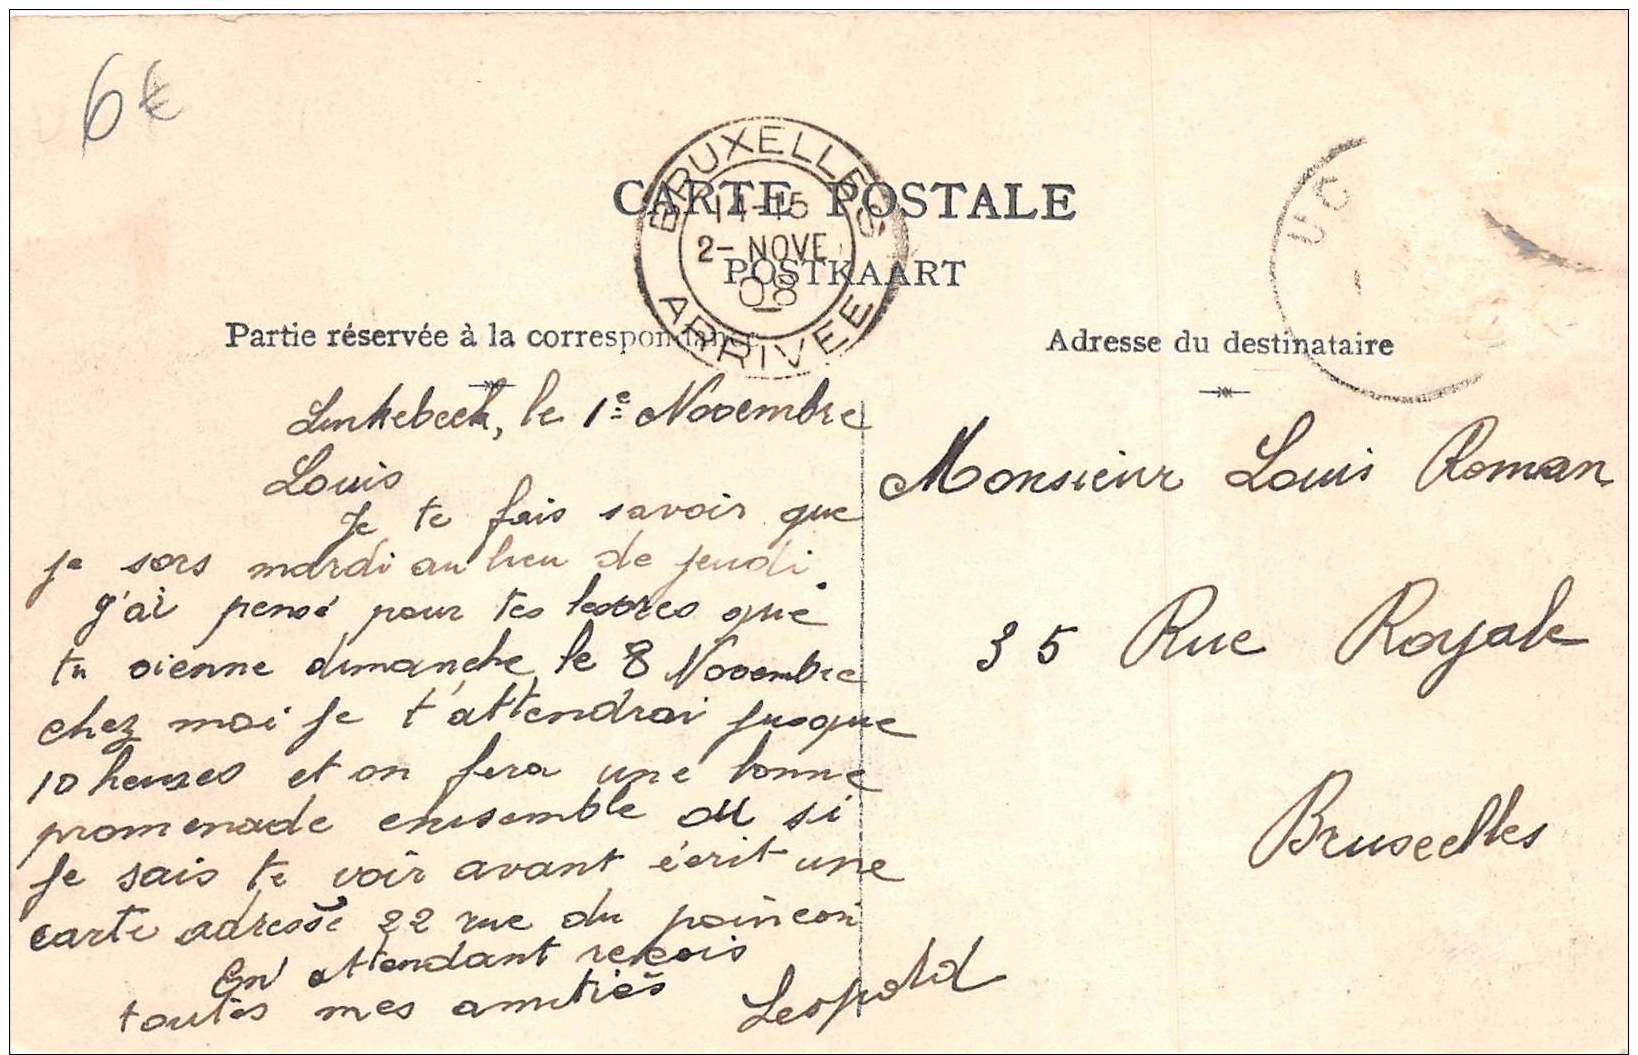 6€
BRUXELLES
11-15
2- NOVE
08
ARRIVEE
UC
CARTE POSTALE
POSTKAART
Partie réservée à la correspondance
Adresse du destinataire
Linkebeek, le 1e Novembre
Louis
Je te fais savoir que
je sors mardi au lieu de jeudi
j'ai pensé pour tes lettres que
tu vienne dimanche le 8 Novembre
chez moi je t'attendrai jusque
10 heures et on fera une bonne
promenade ensemble ou si
je sais te voir avant écrit une
carte adresse 22 rue du poinçon
En attendant reçois
toutes mes amitiés
Leopold
Monsieur Louis Roman
35 Rue Royale
Bruxelles